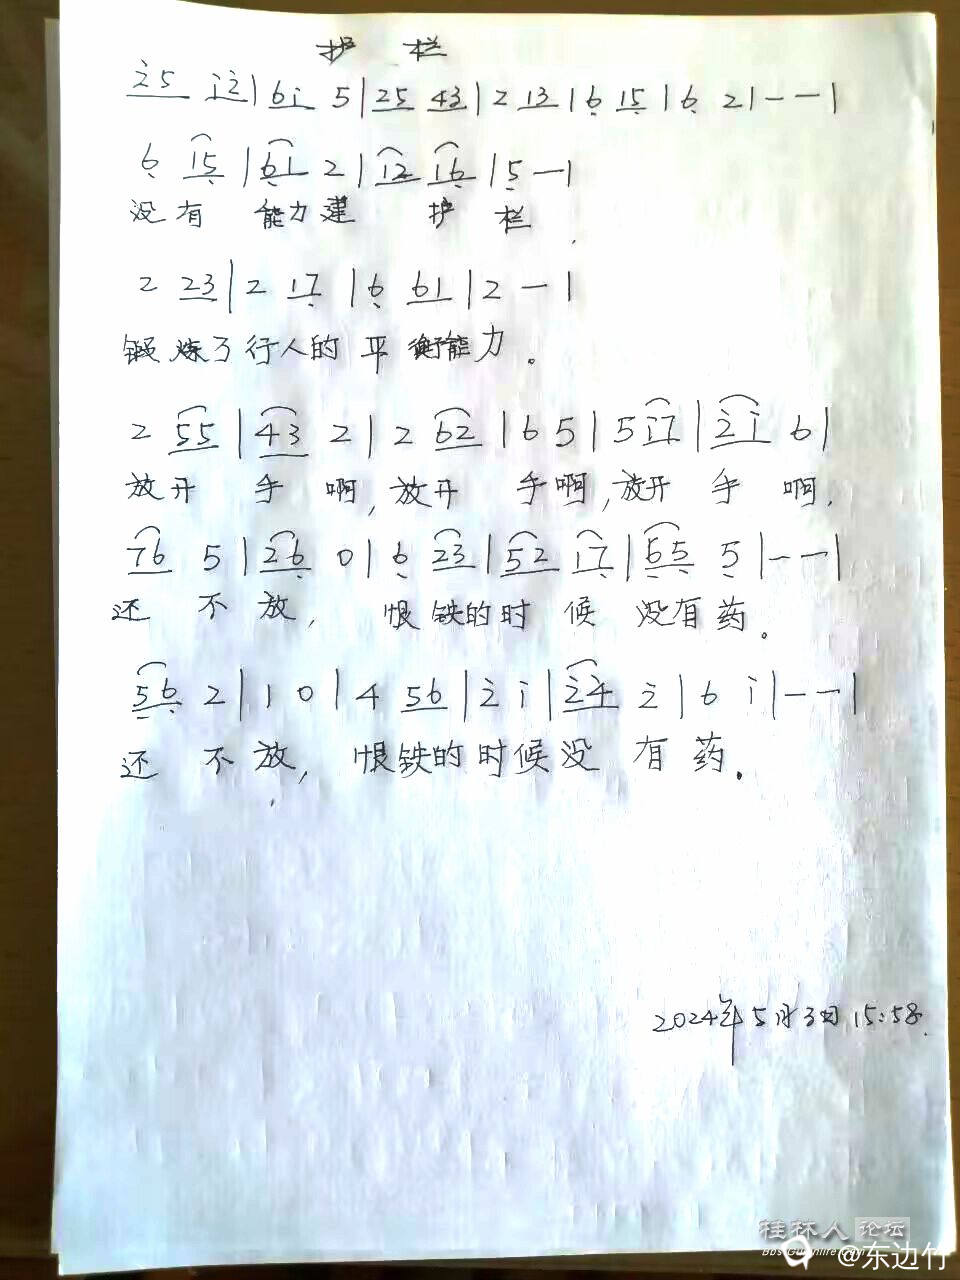 护 栏
2̇5 i̇2̇ | 6i̇ 5 | 25 43 | 2 13 | 6̣ 15̣ | 6̣ 2 | - - |
6̣ 15̣ | 6̣1 2 | 12 16̣ | 5̣ - |
没有 能力建 护 栏
2 23 | 2 17̣ | 6̣ 61 | 2 - |
锻炼了行人的平衡能力。
2 55 | 43 2 | 2 62 | 6 5 | 5 i̇7 | 2̇i̇ 6 |
放开 手 啊,放开 手啊,放开 手 啊,
76 5 | 26̣ 0 | 6̣ 23 | 52 17̣ | 6̣5̣ 5̣ | - - |
还 不 放, 恨铁的时 候 没有药。
5̣6̣ 2 | 1 0 | 4 56 | 2̇ i̇ | 2̇4̇ 2̇ | 6 i̇ | - - |
还 不放, 恨铁的时候没 有药。
2024年5月3日15:58.
桂林人论坛
@东边竹